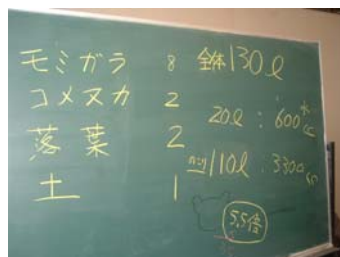 モミガラ 8 全体130ℓ
コメヌカ 2
20ℓ : 600cc 水
落葉 2
110ℓ : 3300cc
土 1
5.5倍